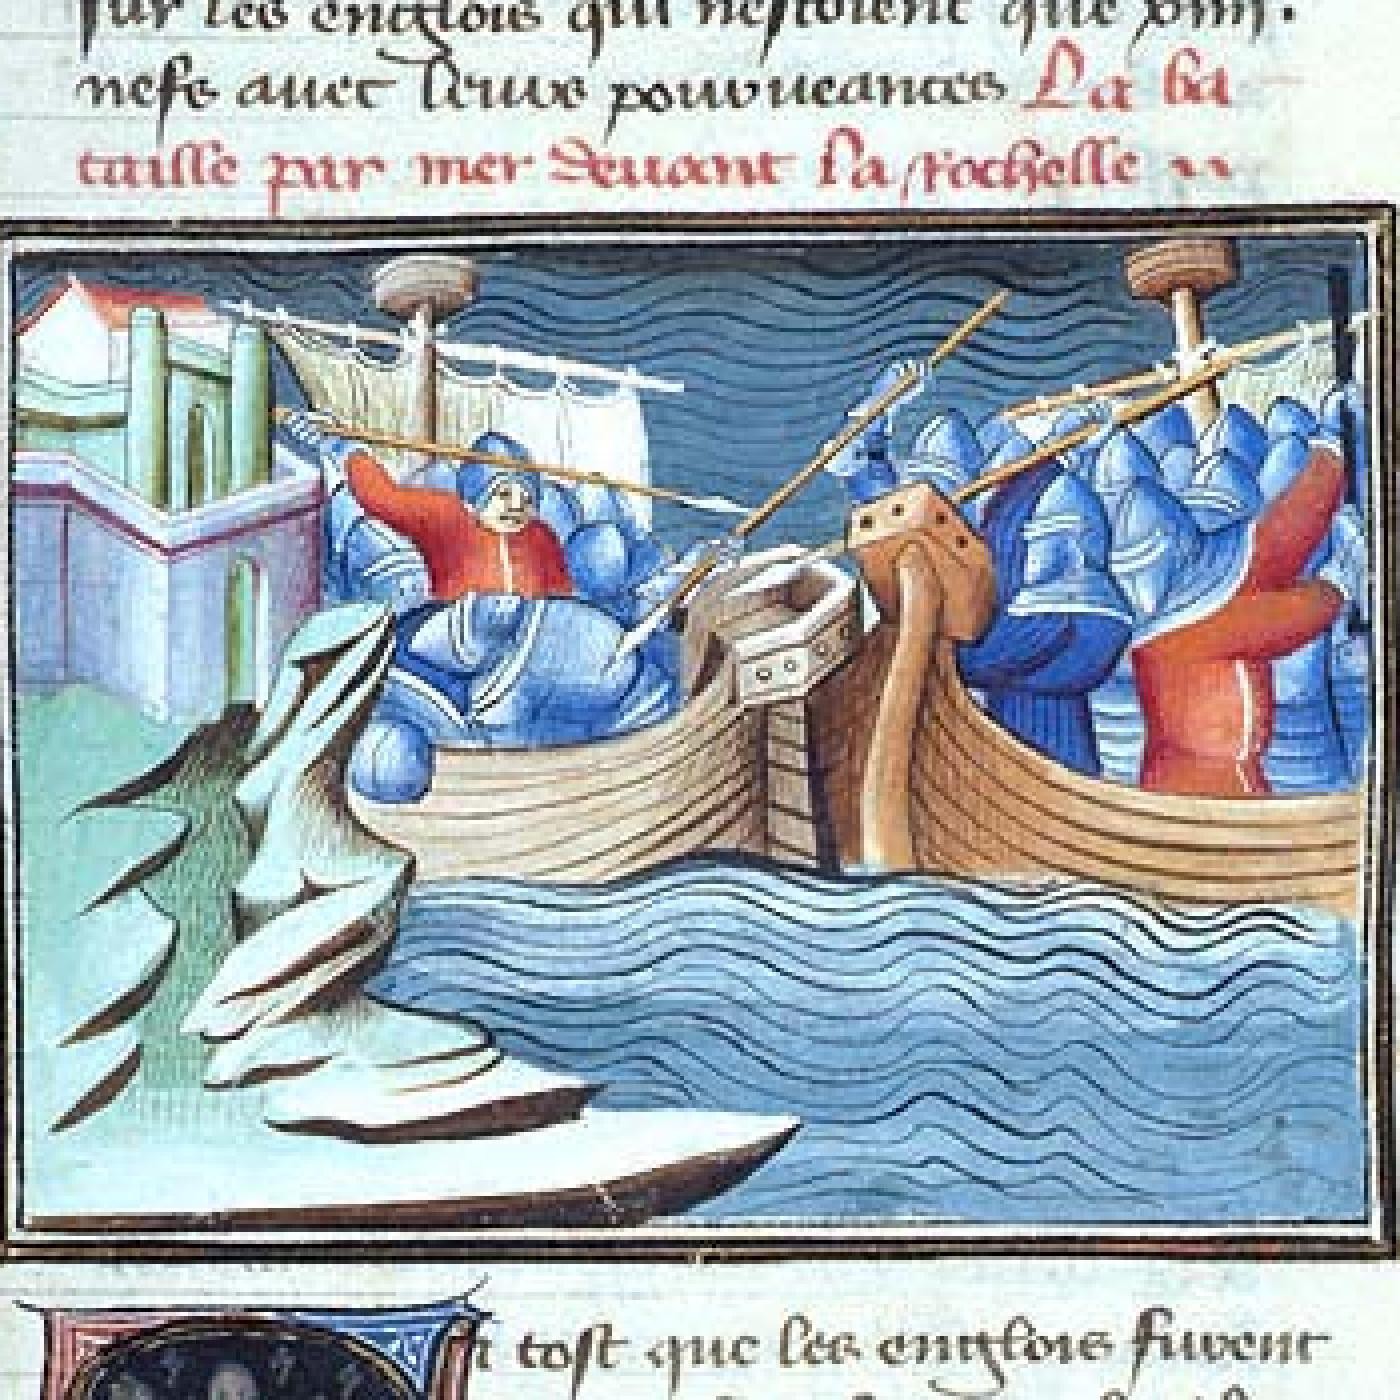 sur les englois qui nestoient que xiiii.
nefs auec leurs pourueances La ba
taille par mer deuant la rochelle
tost que les englois furent